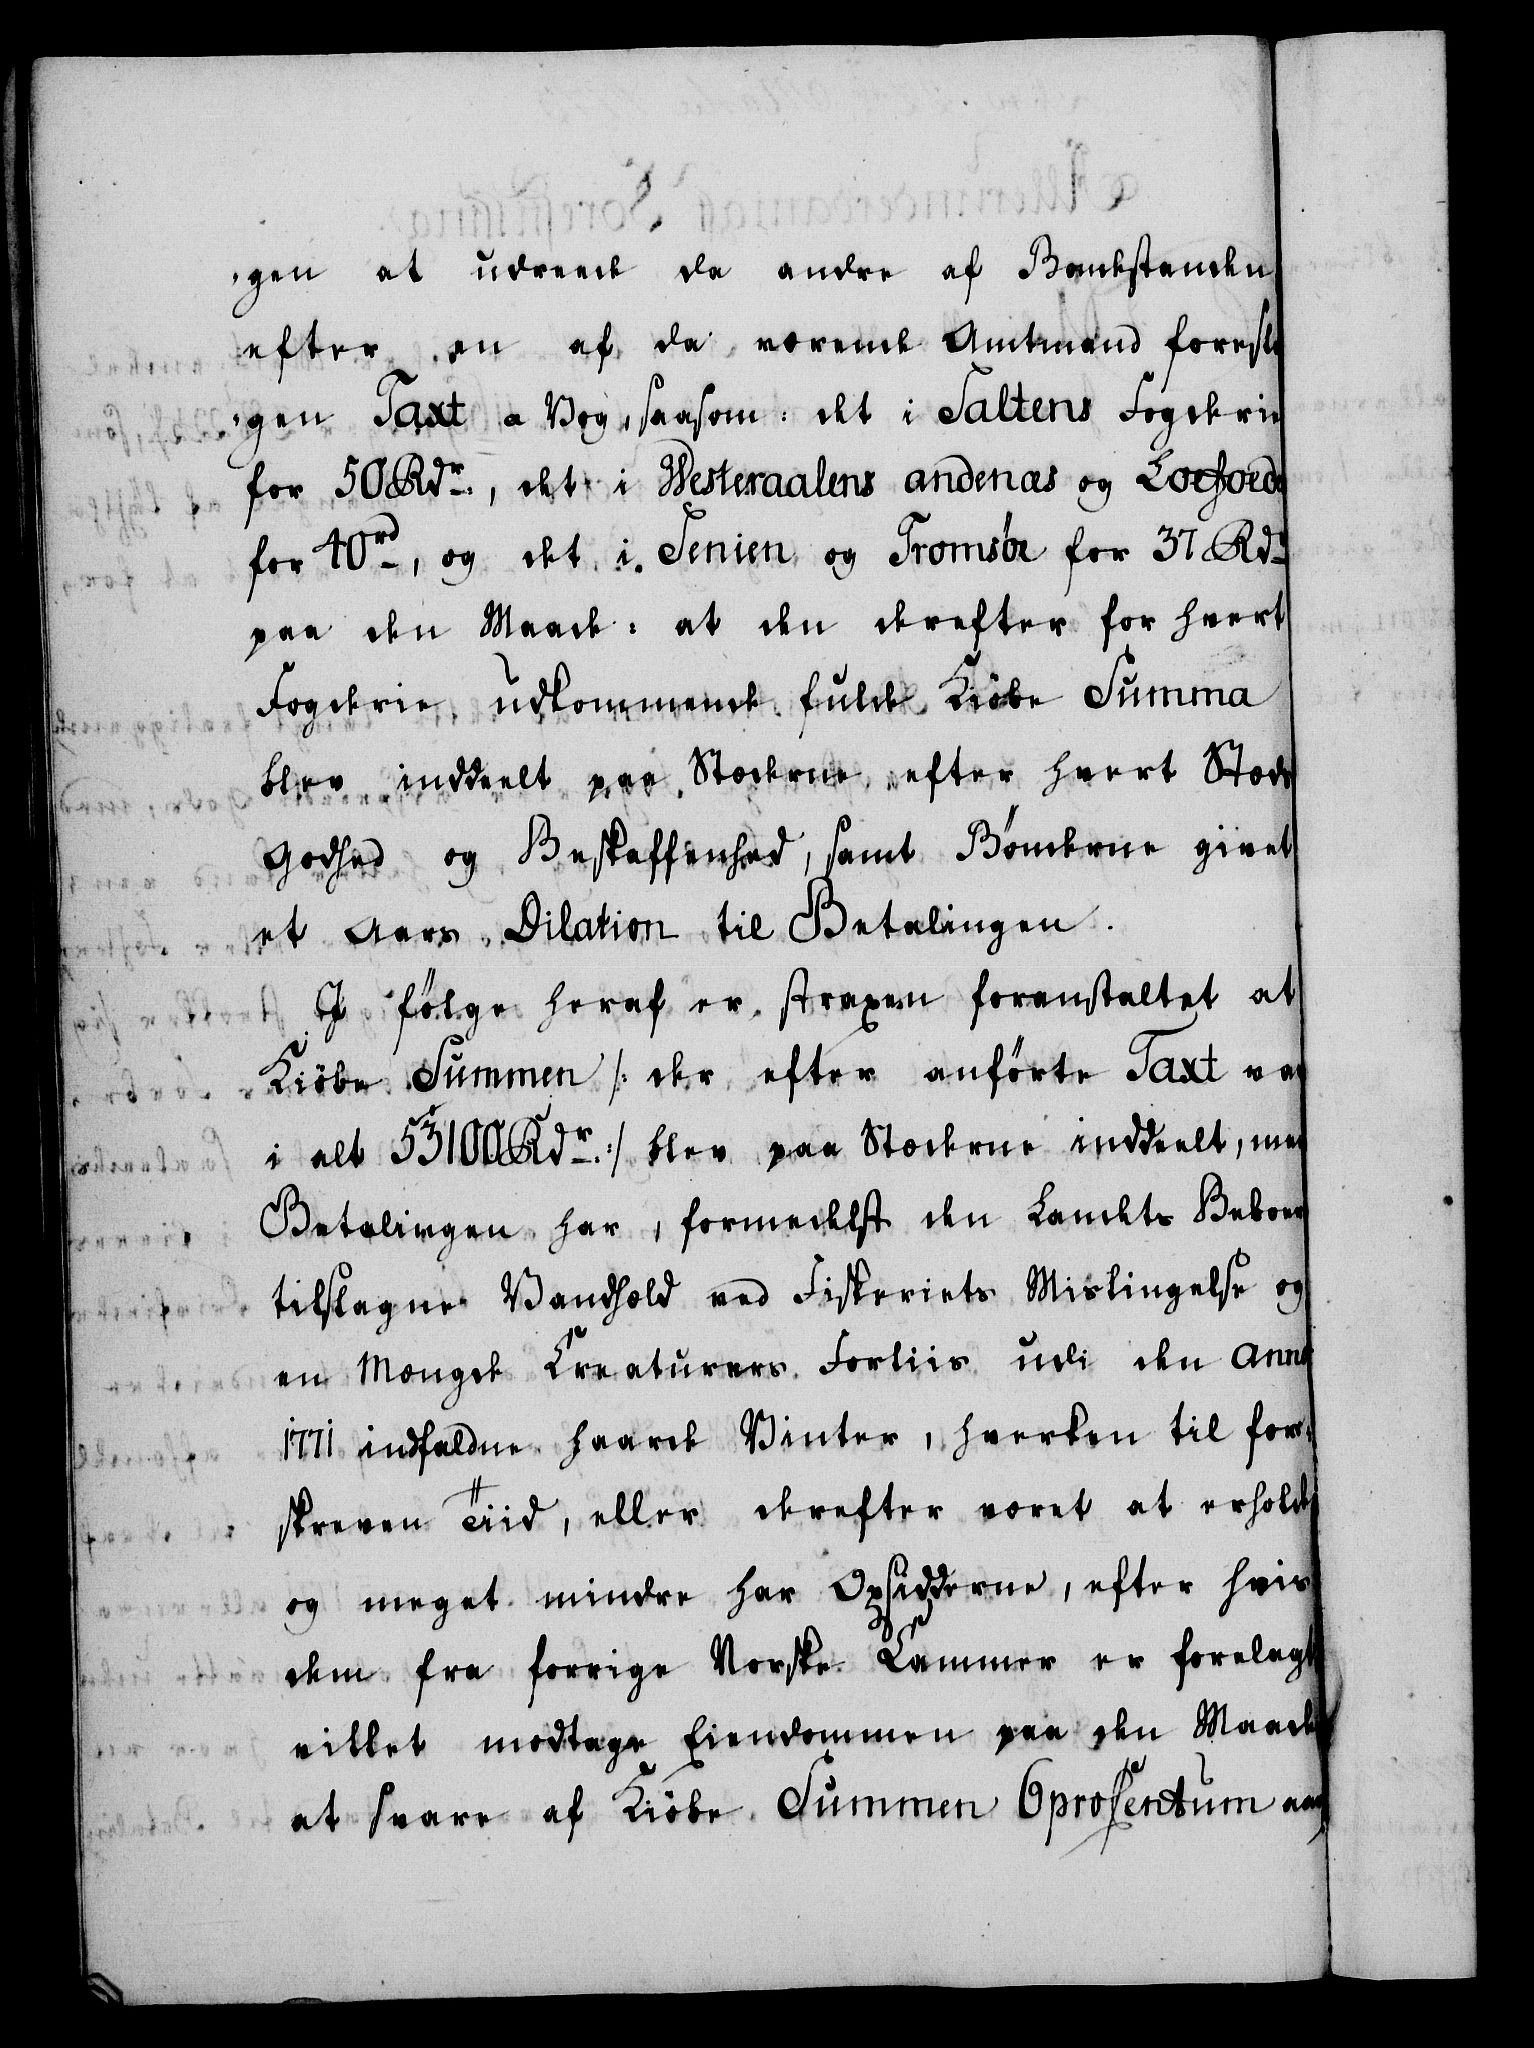 gen at udreede da andre af Bondestanden
efter en af da værende Amtmand foresla
gen Taxt a Vog, saasom: det i Saltens Fogderie
for 50 Rdr., det i Westeraalens andenæs og Loefoede
for 40rd, og det i Senien og Tromsöe for 37 Rdr
paa den Maade: at den derefter for hvert
Fogderie udkommende fulde Kiöbe Summa
blev inddeelt paa Stæderne efter hvert Stæds
Godhed og Beskaffenhed, samt Bönderne givet
et Aars Dilation til Betalingen.
I fölge heraf er straxen foranstaltet at
Kiöbe Summen /: der efter anförte Taxt var
i alt 53100 Rdr. :/ blev paa Stæderne inddeelt, men
Betalingen har, formedelst den Landets Beboer
tilslagne Vandheld ved Fiskeriets Mislingelse og
en Mængde Creaturers Forliis udi den Anno
1771 indfaldne haarde Vinter, hverken til fore-
skreven Tiid, eller derefter været at erholde
og meget mindre har Opsidderne, efter hvis
dem fra forrige Norske Cammer er forelagt
villet modtage Eiendommen paa den Maade
at svare af Kiöbe Summen 6 prosentum aar